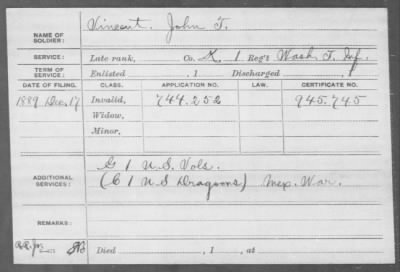 NAME OF SOLDIER: Vincent, John T.
SERVICE: Late rank, Co. K, 1 Reg't Wash. T. Inf.
TERM OF SERVICE: Enlisted , 1 Discharged , 1
DATE OF FILING. CLASS. APPLICATION NO. LAW. CERTIFICATE NO.
1889 Dec. 17 Invalid, 744.252 945.745
Widow,
Minor,
ADDITIONAL SERVICES: G 1 U.S. Vols.
(C 1 U S Dragoons) Mex. War.
REMARKS:
Died , 1 , at